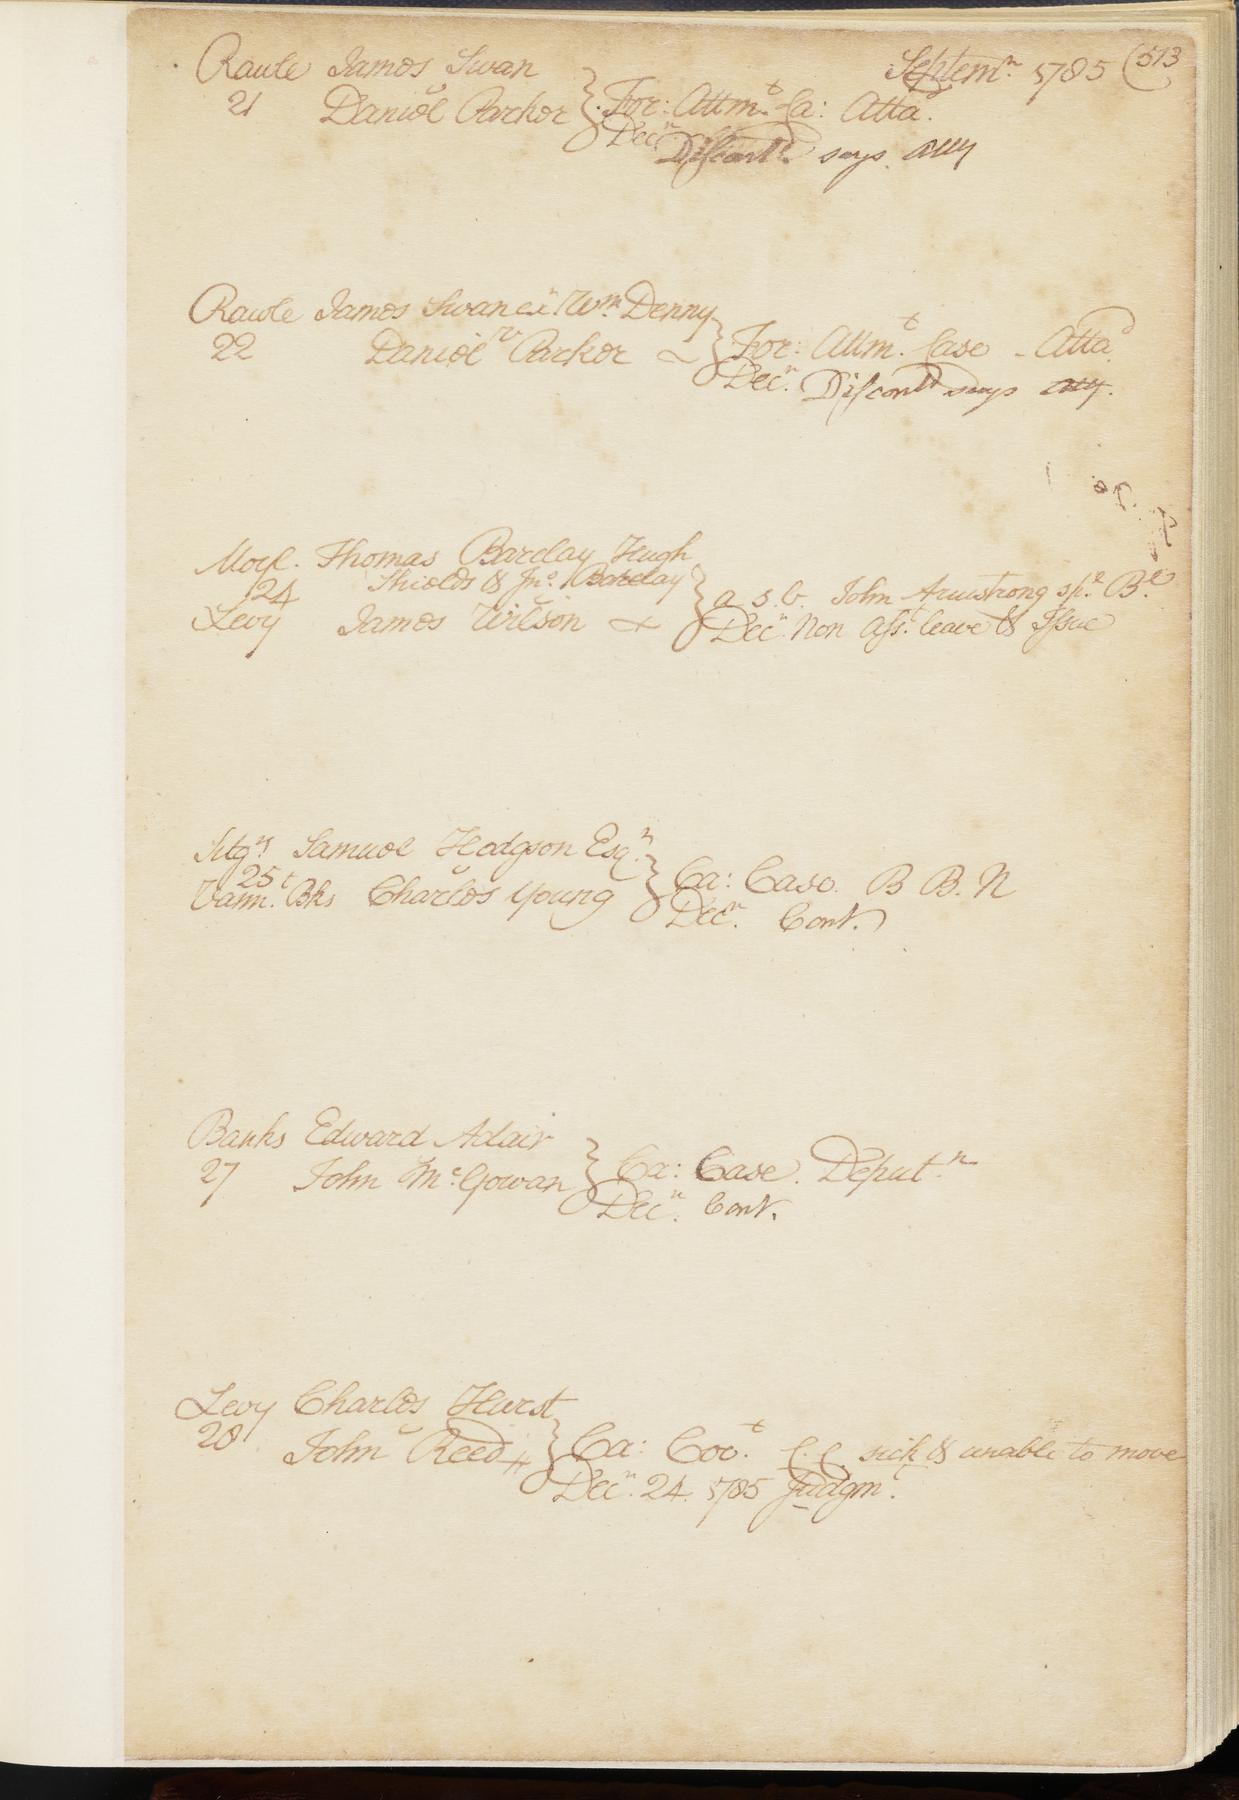 Septemr. 1785 (513
Rawle James Swan
21 Daniel Parker } For: Attmt. Ca: Attad.
Decr. Discontd. says atty
Rawle James Swan Wm. Denny
22 v Daniel Parker } For: Attmt. Case - Attad.
Decr. Discontd says atty.
Moyl. Thomas Barclay Hugh
24 Shields & Jno. Barclay } a s. b. John Armstrong spl. Bl.
Levy James Wilson Decr. Non Asst. leave & Issue
Samuel Hodgson Esqr.
25
Vannt. Bks Charles Young } Ca: Case. B B. N
Decr. Cont.
Banks Edward Adair
27 John McGowan } Ca: Case. Deputn.
Decr. Cont.
Levy Charles Hurst
28 John Reed } Ca: Covt. C. C. sick & unable to move
Decr. 24. 1785 Judgmt.